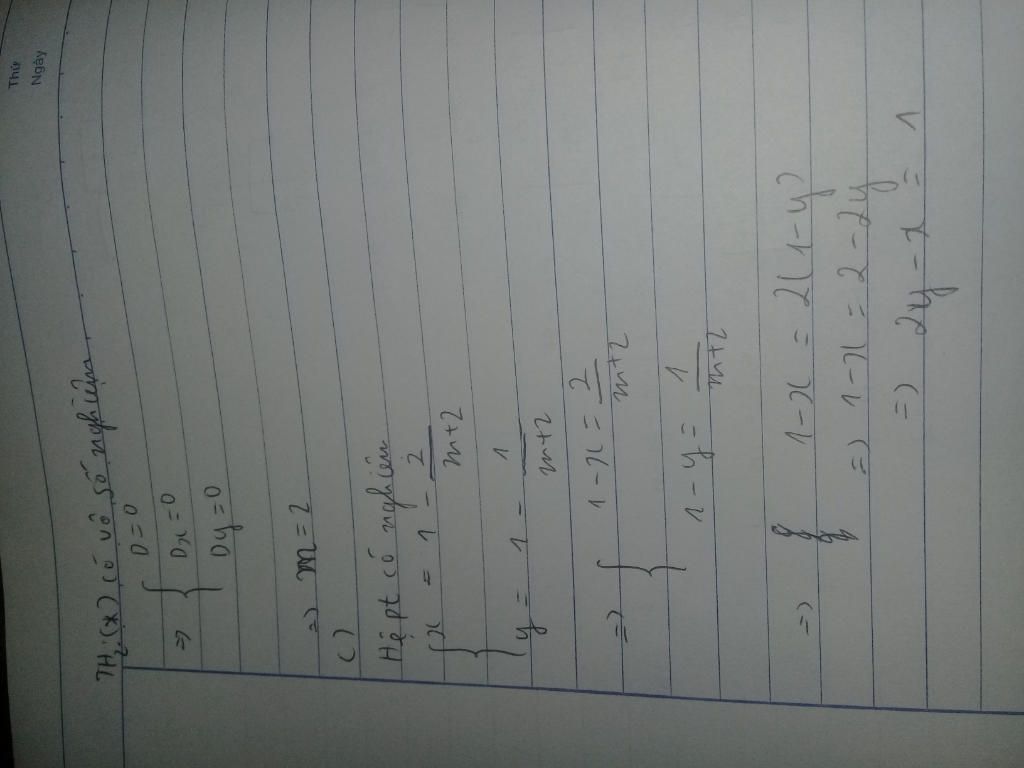 Thứ
Ngày
TH2: (*) có vô số nghiệm.
=> { D = 0
Dx = 0
Dy = 0
=> m = 2
c)
Hệ pt có nghiệm
{ x = 1 - 2/(m+2)
y = 1 - 1/(m+2)
=> { 1 - x = 2/(m+2)
1 - y = 1/(m+2)
=> 1 - x = 2(1 - y)
=> 1 - x = 2 - 2y
=> 2y - x = 1